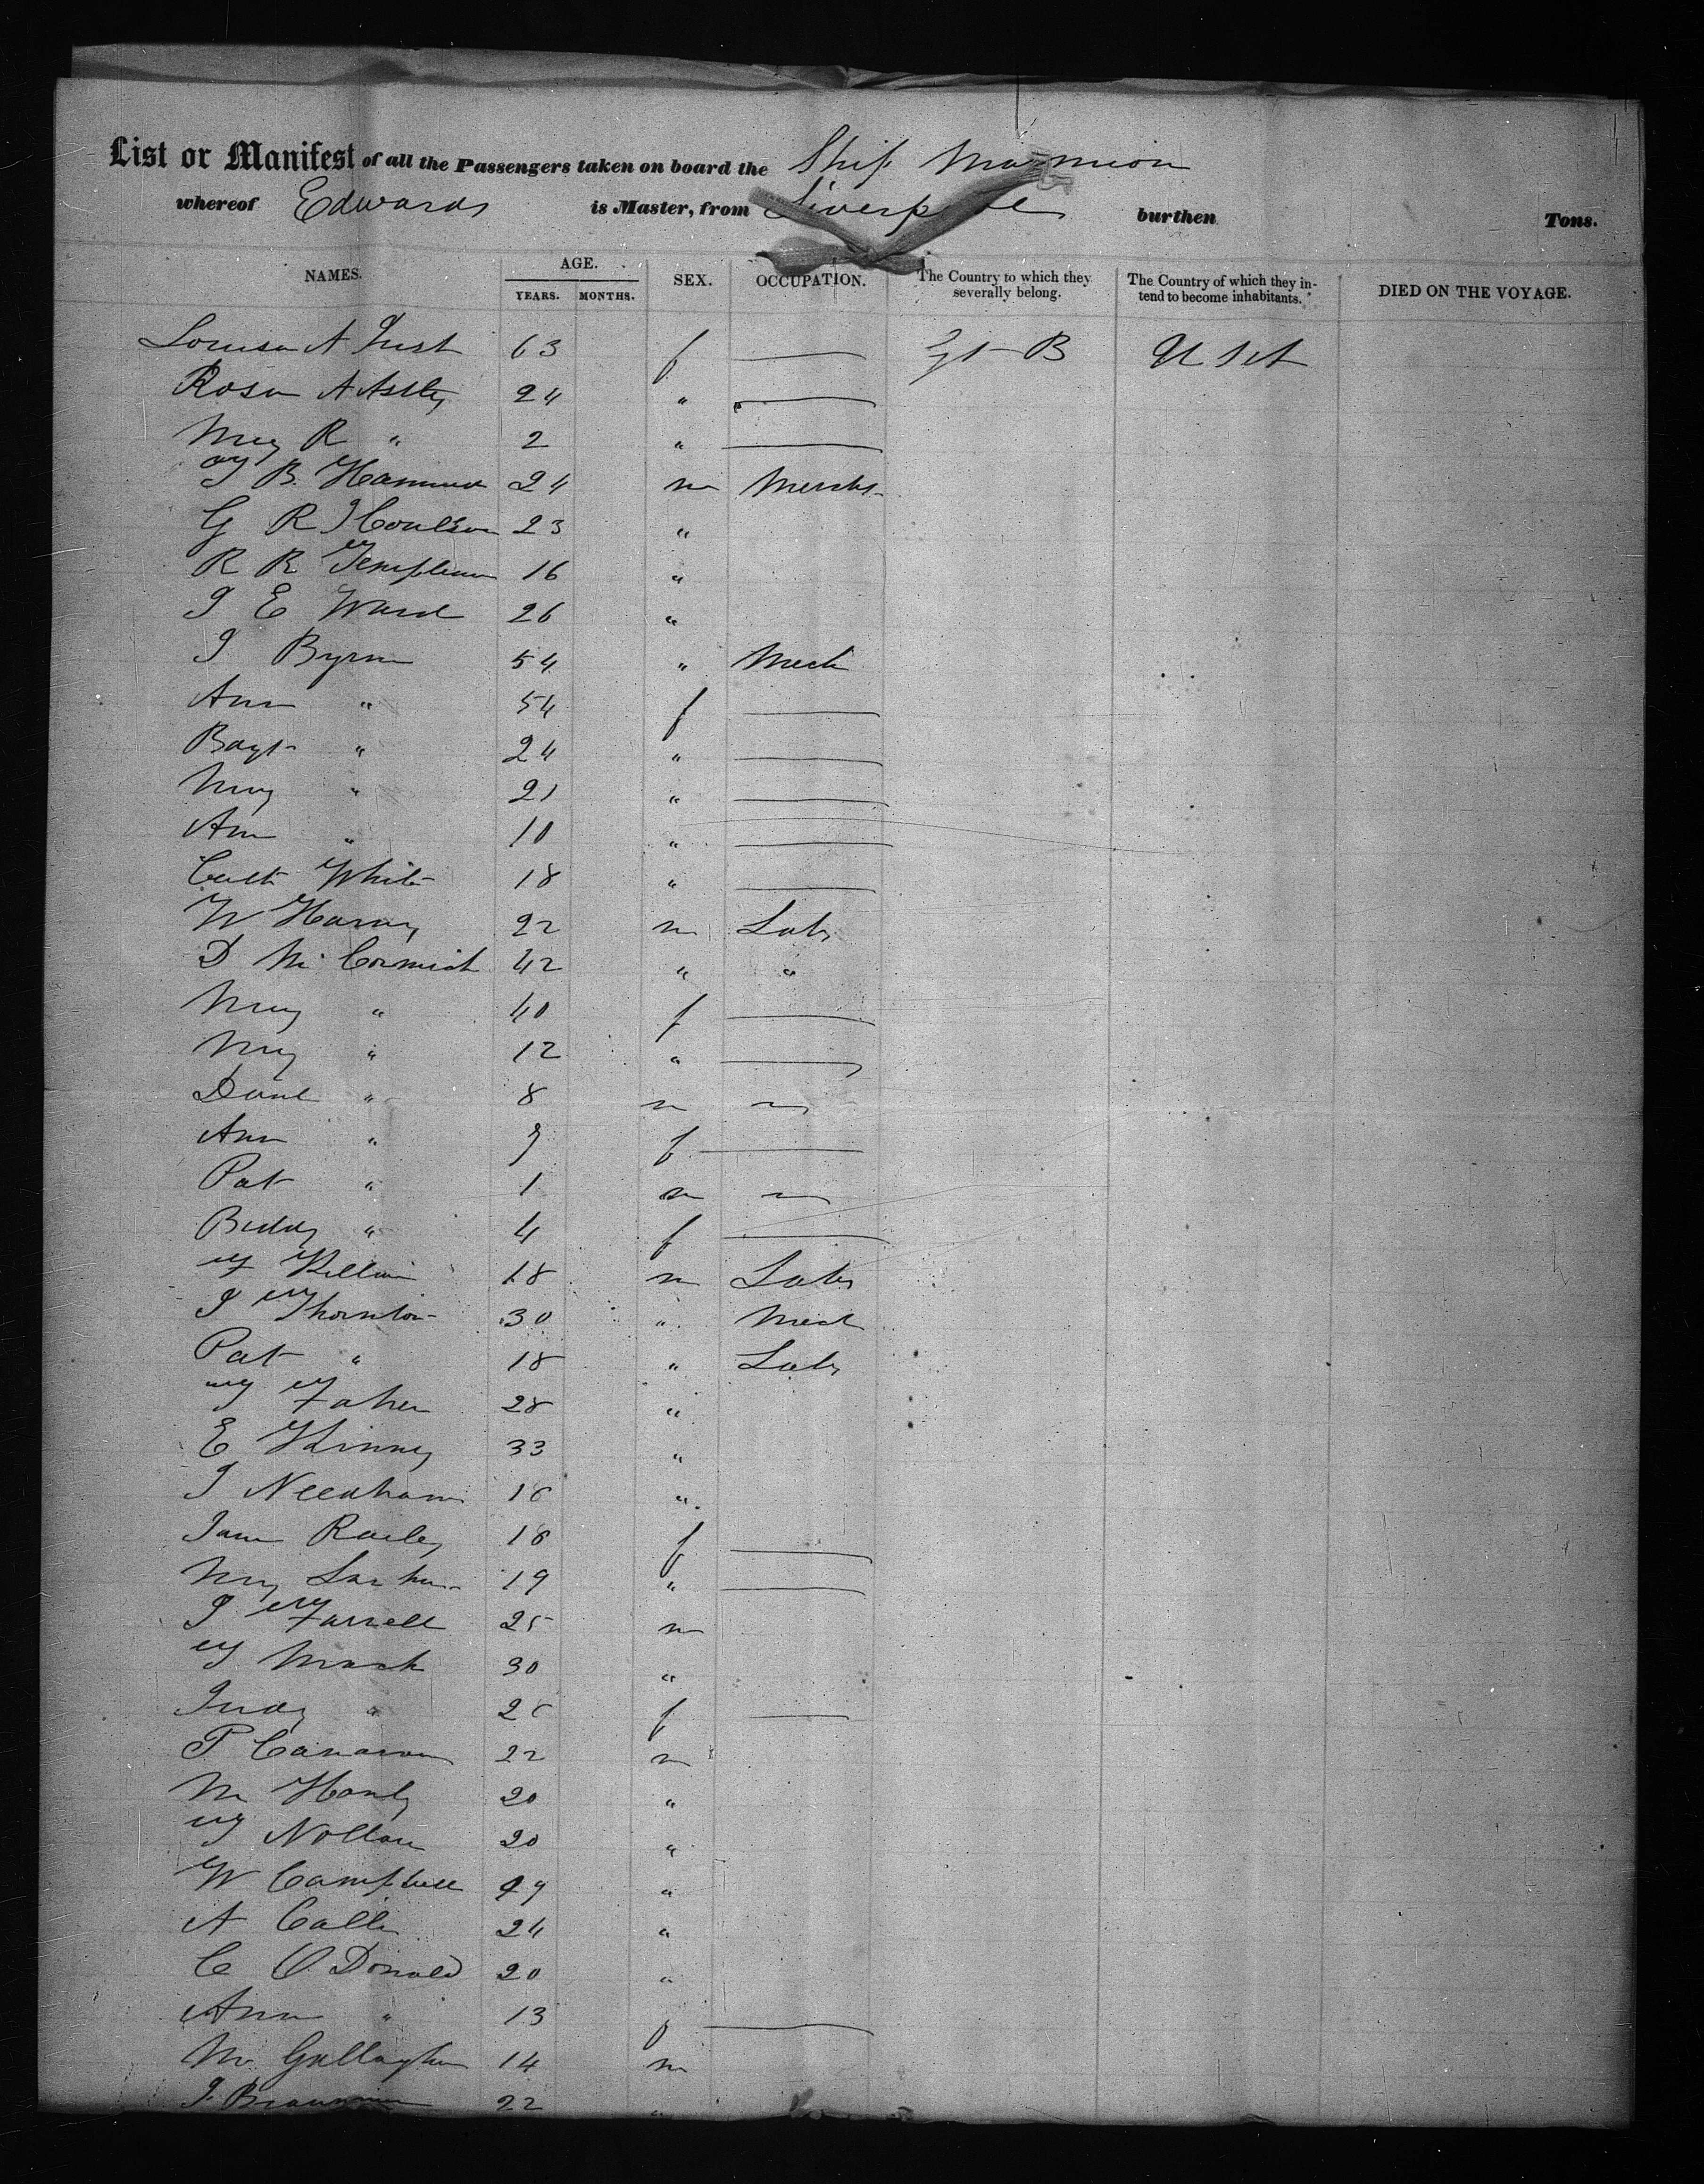 List or Manifest of all the Passengers taken on board the Ship Marmion
whereof Edwards is Master, from Liverpool burthen Tons.
NAMES. AGE. YEARS. MONTHS. SEX. OCCUPATION. The Country to which they severally belong. The Country of which they intend to become inhabitants. DIED ON THE VOYAGE.
Louisa A 63 f — Gt B U S A
Rosa A Astley 24 " —
Mary R " 2 " —
T B Hammond 24 m Merchts
G R J Coulson 23 "
R R Templeman 16 "
J E Ward 26 "
J Byrne 54 " Mech
Ann " 54 f —
Bagt " 24 " —
Mary " 21 " —
Ann " 10 " —
Cath White 18 " —
W Harvey 22 m Labr
D McCormick 42 " "
Mary " 40 f —
Mary " 12 " —
Danl " 8 m —
Ann " 7 f —
Pat " 1 m —
Biddy " 4 f —
18 m Labr
J Thornton 30 " Mech
Pat " 18 " Labr
T Faher 28 "
E Kinney 33 "
J Needham 18 "
Jane Railey 18 f —
Mary 19 " —
J Farrell 25 m
T Mack 30 "
Judy " 28 f —
P Canavan 22 m
M Hanly 20 "
T Nollan 20 "
W Campbell 29 "
A 24 "
C O'Donald 20 "
Ann " 13 f —
M Gallagher 14 m
J 22 "